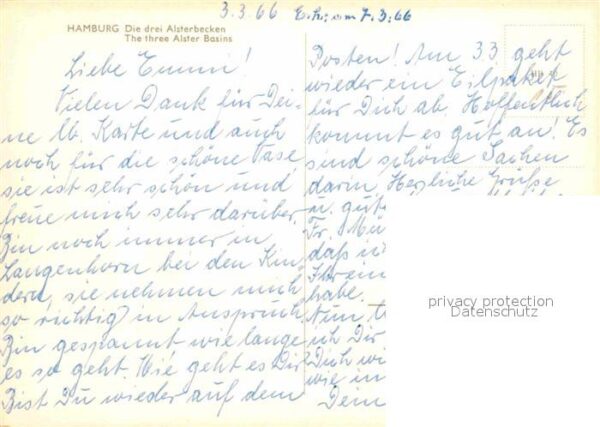 3.3.66 E.h. am 7.3.66
HAMBURG Die drei Alsterbecken
The three Alster Basins
Liebe Emmi!
Vielen Dank für Dei-
ne lb. Karte und auch
noch für die schöne Vase
sie ist sehr schön und
freue mich sehr darüber.
Bin noch immer in
Langenhorn bei den Kin
dern, sie nehmen mich
so richtig in Anspruch
Bin gespannt wie lange
es so geht. Wie geht es Dir
Bist Du wieder auf dem
Posten! Am 3.3. geht
wieder ein Eilpaket
für Dich ab. Hoffentlich
kommt es gut an! Es
sind schöne Sachen
darin. Herzliche Grüße
u. gut
Fr. Mü
daß i
Ihrem
habe.
Nun
ich Dir
Dich wi
wie in
Dem
privacy protection
Datenschutz